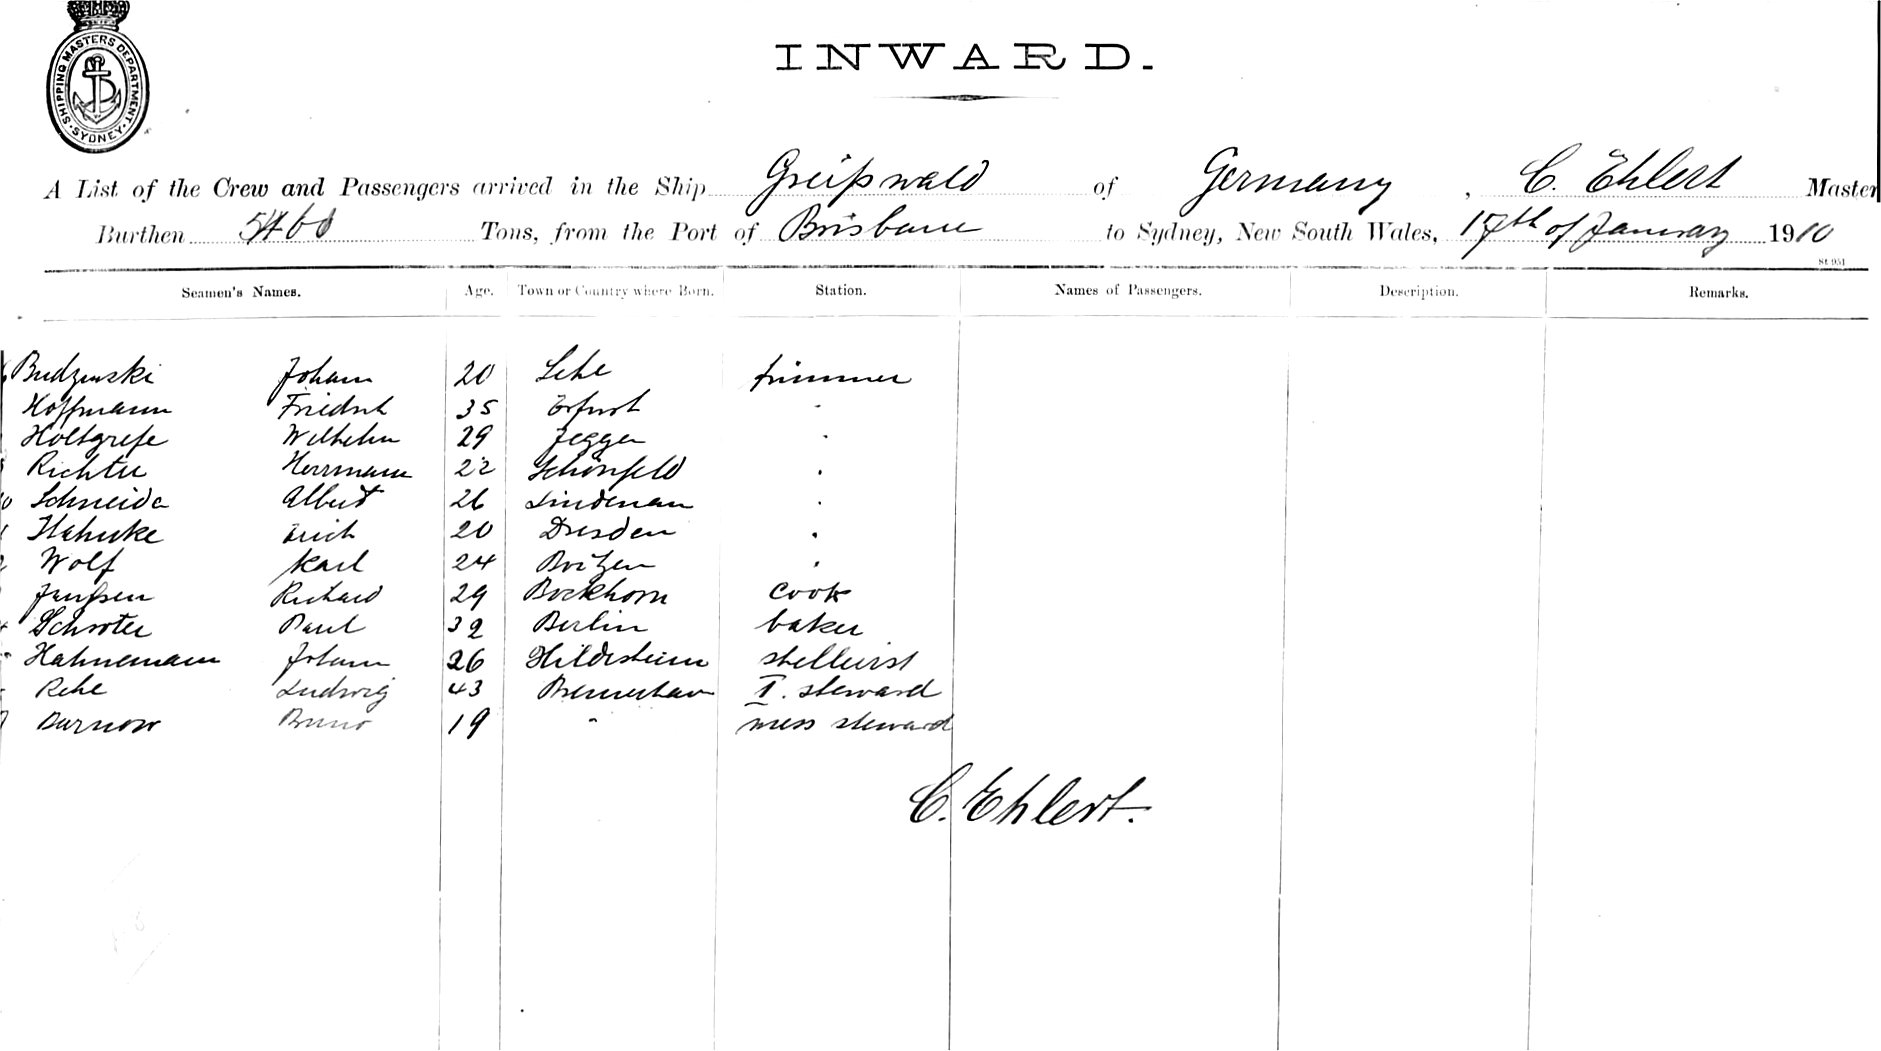 SHIPPING MASTERS DEPARTMENT. SYDNEY
INWARD.
A List of the Crew and Passengers arrived in the Ship Greifswald of Germany, C. Ehlert Master
Burthen 5460 Tons, from the Port of Brisbane to Sydney, New South Wales, 17th of January 1910
St 951
Seamen's Names. Age. Town or Country where Born. Station. Names of Passengers. Description. Remarks.
Budzinski Johann 20 Lehe trimmer
Hoffmann Friedrich 35 Erfurt "
Holtgrefe Wilhelm 29 Jeggen "
Richter Herrmann 22 Schönfeld "
Schneider Albert 26 Lindenau "
Hahnke Erich 20 Dresden "
Wolf Karl 24 "
Janssen Richard 29 Bockhorn cook
Schroter Paul 32 Berlin baker
Hahnemann Johann 26 Hildesheim
Rehe Ludwig 43 Bremerhaven I. steward
Darnow Bruno 19 " mess steward
C. Ehlert.